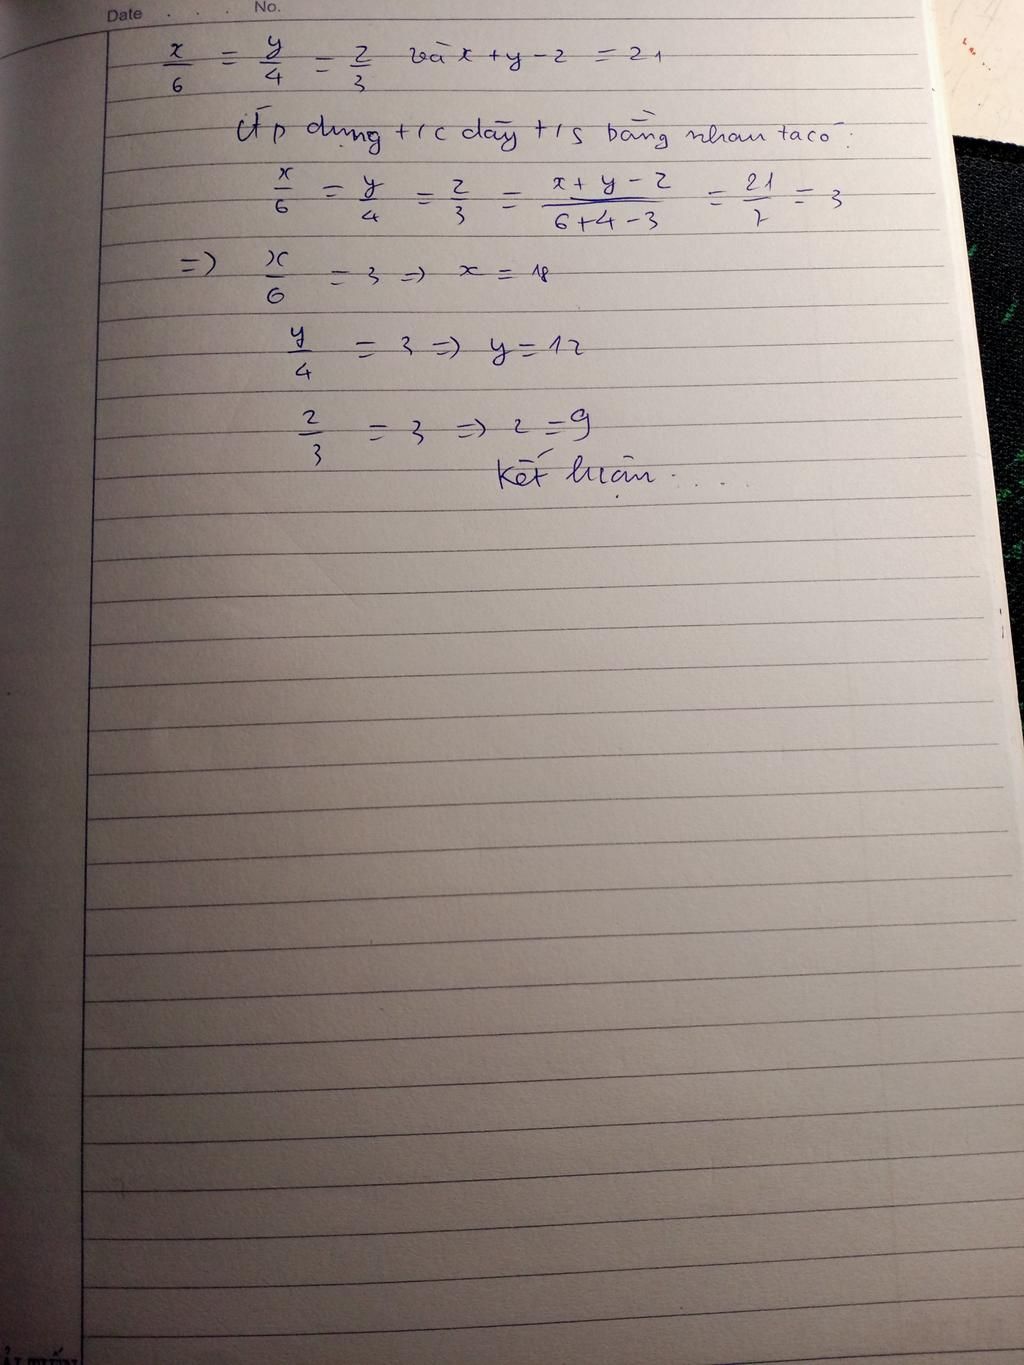 Date . . . No.
x/6 = y/4 = z/3 và x + y - z = 21
Áp dụng t/c dãy t/s bằng nhau ta có:
x/6 = y/4 = z/3 = (x + y - z)/(6 + 4 - 3) = 21/7 = 3
=> x/6 = 3 => x = 18
y/4 = 3 => y = 12
z/3 = 3 => z = 9
Kết luận . . . .